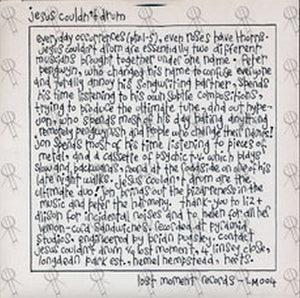 jesus couldn't drum
everyday occurrences (ptel-5), even roses have thorns.
jesus couldn't drum are essentially two different
musicians brought together under one name. peter
pengwyn, who changed his name to confuse everyone
and totally annoy his songwriting partner, spends
his time listening to his own subtle compositions
trying to produce the ultimate tune, and out hype-
jon, who spends most of his day hating anything
remotely penguinish and people who change their name!
jon spends most of his time listening to pieces of
metal, and a cassette of psychic t.v. which plays
slow and backwards, round at the foodside on one of his
late night walks. jesus couldn't drum are the
ultimate duo! jon brings out the bizarreness in the
music and peter the harmony. thank-you to liz +
alison for incidental noises and to helen for all her
lemon-curd sandwiches. recorded at pyramid
studios. engineered by brian pugsley. contact
jesus couldn't drum c/o lost moment, 4 linsey close,
longdean park est. hemel hempstead, herts.
lost moment records - LM004